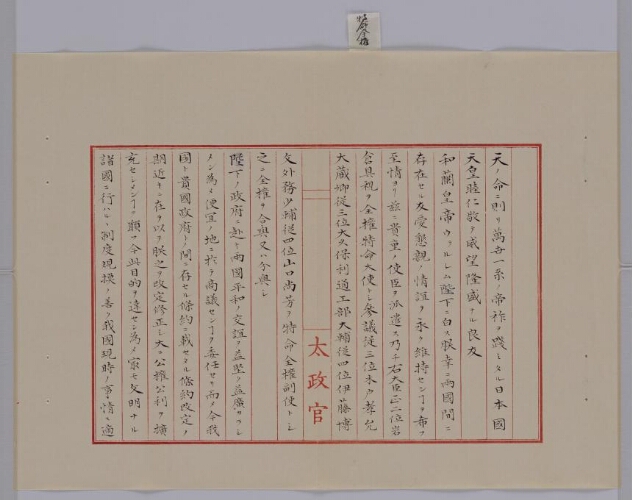 天ノ命ニ則リ萬古一系ノ帝祚ヲ踐ミタル日本國
天皇睦仁敬テ威望隆盛ナル良友
和蘭皇帝ウヰルレム陛下ニ白ス朕幸ニ兩國間ニ
存在セル友愛懇親ノ情誼ヲ永ク維持センヿヲ希フ
至情ヨリ茲ニ貴重ノ使臣ヲ派遣ス乃チ右大臣正二位岩
倉具視ヲ全權特命大使トシ參議從三位木戶孝允
大藏卿從三位大久保利通工部大輔從四位伊藤博
太政官
文外務少輔從四位山口尚芳ヲ特命全權副使トシ
之ニ全權ヲ合與又ハ分與シ
陛下ノ政府ニ赴キ兩國平和ノ交誼ヲ益堅ク益廣カラシ
メン為メ便宜ノ地ニ於テ商議センヿヲ委任セリ而メ今我
國ト貴國政府ト間ニ存セル條約ニ載セタル條約改定ノ
期近キニ在ルヲ以テ朕之ヲ改定修正シ大ニ公權公利ヲ擴
充センヿヲ願フ今此目的ヲ達セン為メ最モ文明ナル
諸國ニ行ハルヽ制度規模ノ善ク我國現時ノ事情ニ適